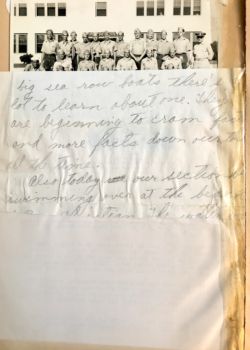 big sea row boats there's a
lot to learn about one. They
are beginning to cram
and more facts down our
all the time.
Also today our section
swimming over at the